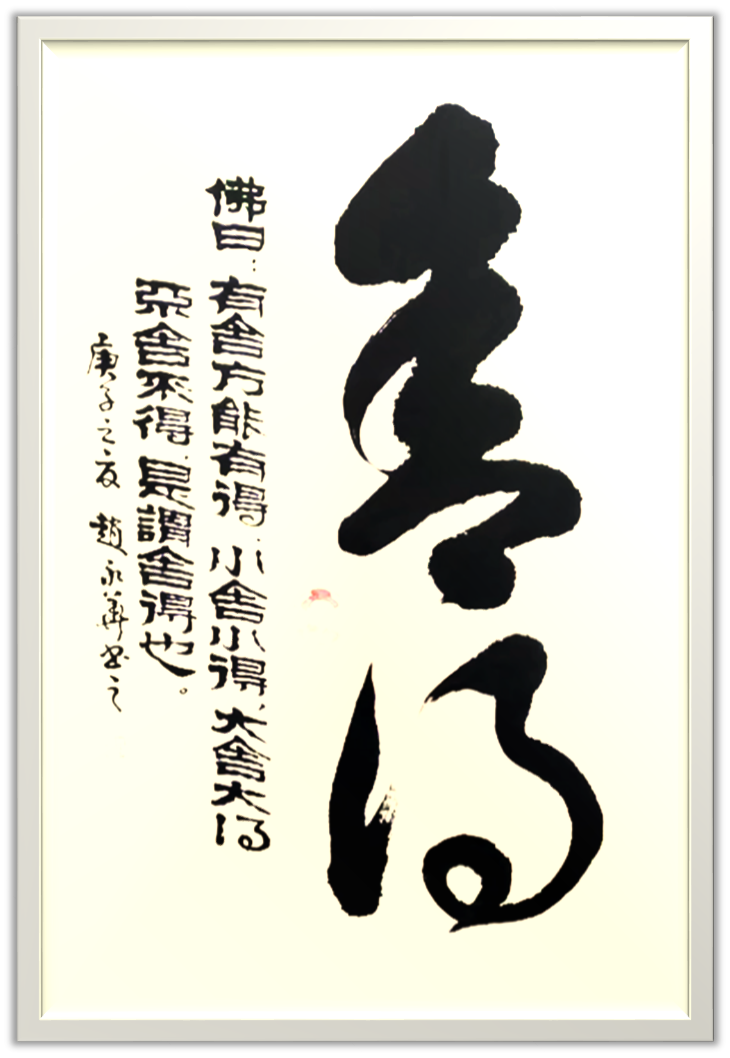 舍得
佛曰：有舍方能有得，小舍小得，大舍大得
舍不得，是謂舍得也。
庚子之夏 趙永華书之